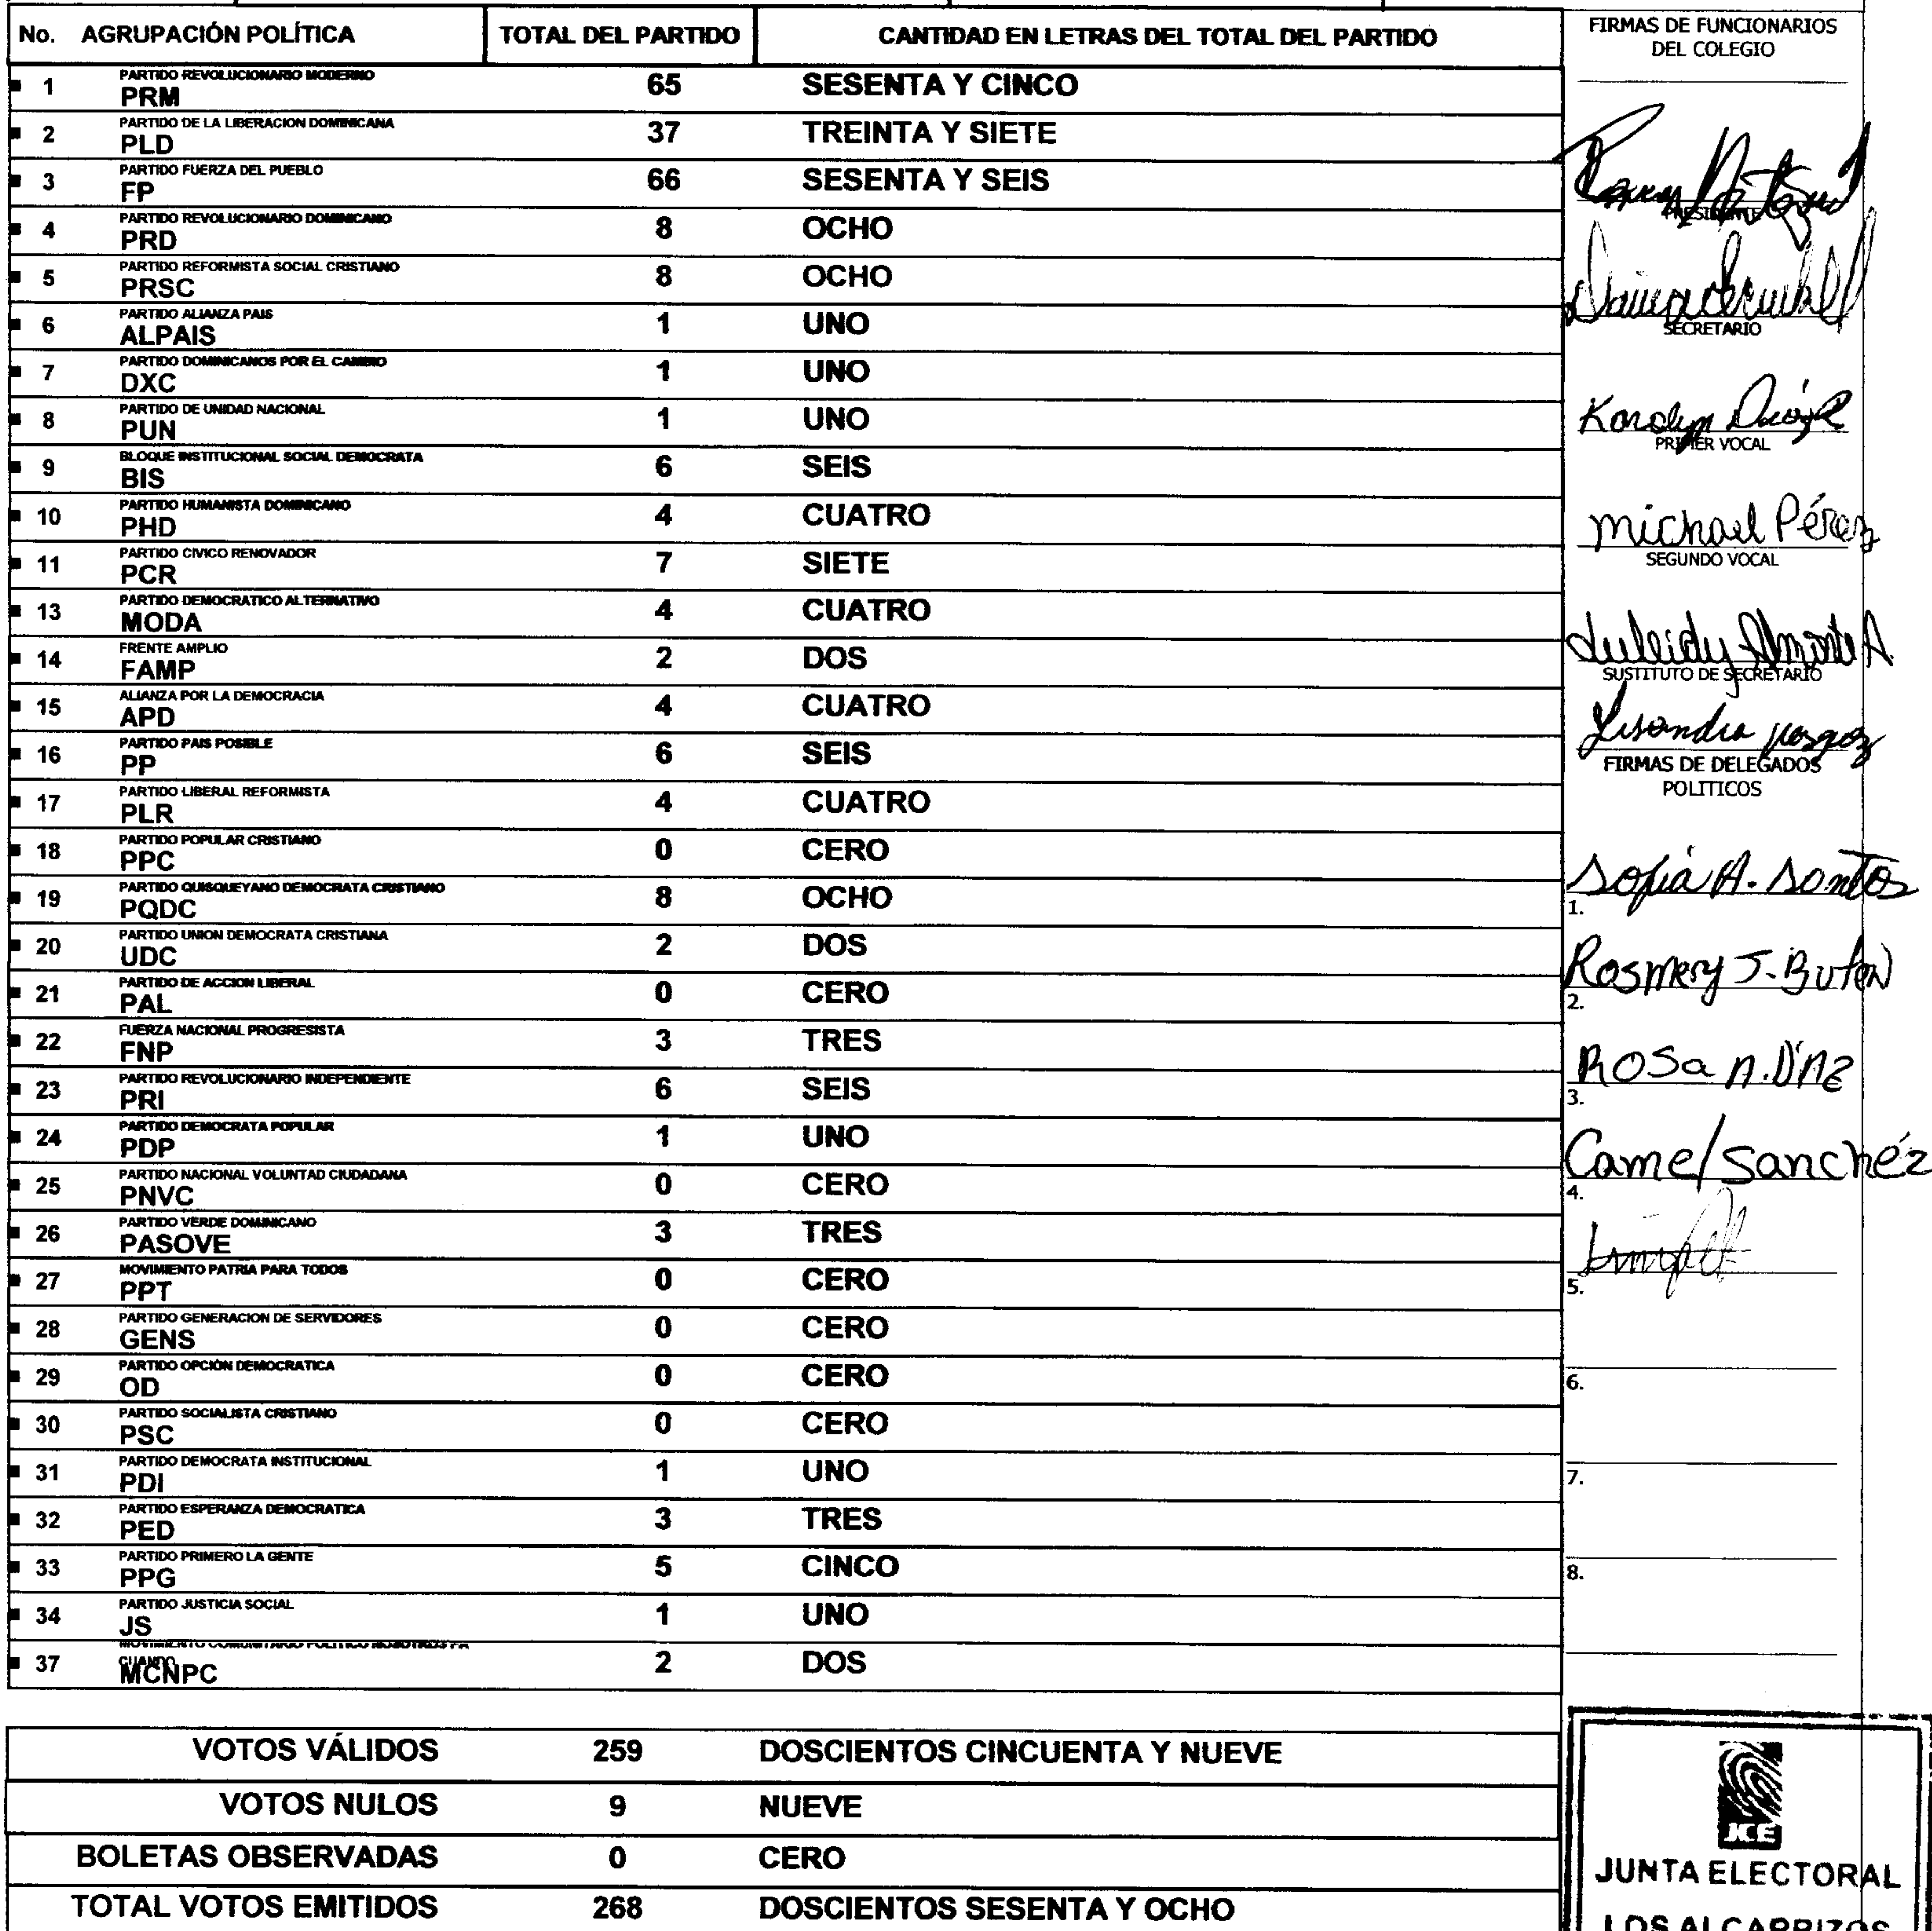 No. AGRUPACIÓN POLÍTICA TOTAL DEL PARTIDO CANTIDAD EN LETRAS DEL TOTAL DEL PARTIDO
1 PARTIDO REVOLUCIONARIO MODERNO
PRM 65 SESENTA Y CINCO
2 PARTIDO DE LA LIBERACION DOMINICANA
PLD 37 TREINTA Y SIETE
3 PARTIDO FUERZA DEL PUEBLO
FP 66 SESENTA Y SEIS
4 PARTIDO REVOLUCIONARIO DOMINICANO
PRD 8 OCHO
5 PARTIDO REFORMISTA SOCIAL CRISTIANO
PRSC 8 OCHO
6 PARTIDO ALIANZA PAIS
ALPAIS 1 UNO
7 PARTIDO DOMINICANOS POR EL CAMBIO
DXC 1 UNO
8 PARTIDO DE UNIDAD NACIONAL
PUN 1 UNO
9 BLOQUE INSTITUCIONAL SOCIAL DEMOCRATA
BIS 6 SEIS
10 PARTIDO HUMANISTA DOMINICANO
PHD 4 CUATRO
11 PARTIDO CIVICO RENOVADOR
PCR 7 SIETE
13 PARTIDO DEMOCRATICO ALTERNATIVO
MODA 4 CUATRO
14 FRENTE AMPLIO
FAMP 2 DOS
15 ALIANZA POR LA DEMOCRACIA
APD 4 CUATRO
16 PARTIDO PAIS POSIBLE
PP 6 SEIS
17 PARTIDO LIBERAL REFORMISTA
PLR 4 CUATRO
18 PARTIDO POPULAR CRISTIANO
PPC 0 CERO
19 PARTIDO QUISQUEYANO DEMOCRATA CRISTIANO
PQDC 8 OCHO
20 PARTIDO UNION DEMOCRATA CRISTIANA
UDC 2 DOS
21 PARTIDO DE ACCION LIBERAL
PAL 0 CERO
22 FUERZA NACIONAL PROGRESISTA
FNP 3 TRES
23 PARTIDO REVOLUCIONARIO INDEPENDIENTE
PRI 6 SEIS
24 PARTIDO DEMOCRATA POPULAR
PDP 1 UNO
25 PARTIDO NACIONAL VOLUNTAD CIUDADANA
PNVC 0 CERO
26 PARTIDO VERDE DOMINICANO
PASOVE 3 TRES
27 MOVIMIENTO PATRIA PARA TODOS
PPT 0 CERO
28 PARTIDO GENERACION DE SERVIDORES
GENS 0 CERO
29 PARTIDO OPCIÓN DEMOCRATICA
OD 0 CERO
30 PARTIDO SOCIALISTA CRISTIANO
PSC 0 CERO
31 PARTIDO DEMOCRATA INSTITUCIONAL
PDI 1 UNO
32 PARTIDO ESPERANZA DEMOCRATICA
PED 3 TRES
33 PARTIDO PRIMERO LA GENTE
PPG 5 CINCO
34 PARTIDO JUSTICIA SOCIAL
JS 1 UNO
37 MOVIMIENTO COMUNITARIO POLITICO NOSOTROS PA
CUANDO
MCNPC 2 DOS
VOTOS VÁLIDOS 259 DOSCIENTOS CINCUENTA Y NUEVE
VOTOS NULOS 9 NUEVE
BOLETAS OBSERVADAS 0 CERO
TOTAL VOTOS EMITIDOS 268 DOSCIENTOS SESENTA Y OCHO
FIRMAS DE FUNCIONARIOS
DEL COLEGIO
PRESIDENTE
SECRETARIO
Karolyn
PRIMER VOCAL
Michael Pérez
SEGUNDO VOCAL
Almonte A.
SUSTITUTO DE SECRETARIO
Lisandra
FIRMAS DE DELEGADOS
POLITICOS
Sofia A. Santos
1.
Rosmery J. Buten
2.
Rosa n. Díaz
3.
Camel Sanchéz
4.
5.
6.
7.
8.
JCE
JUNTA ELECTORAL
LOS ALCARRIZOS